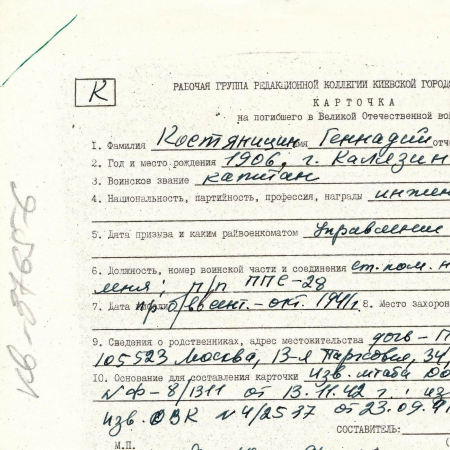 К
РАБОЧАЯ ГРУППА РЕДАКЦИОННОЙ КОЛЛЕГИИ КИЕВСКОЙ ГОРОД
КАРТОЧКА
на погибшего в Великой Отечественной вой
1. Фамилия Костяницин имя Геннадий отч
2. Год и место рождения 1906, г. Калязин
3. Воинское звание капитан
4. Национальность, партийность, профессия, награды инжен
5. Дата призыва и каким райвоенкоматом Управление
6. Должность, номер воинской части и соединения ст. пом. н
п/п ППС-28
7. Дата пр. б/в сент.-окт. 1941г 8. Место захорон
9. Сведения о родственниках, адрес местожительства дочь-Г
105523 Москва, 13-я Парковая, 34
10. Основание для составления карточки изв. штаба
№Ф-8/1311 от 13.11.42 г.; из
изв. ОВК №4/2537 от 23.09.91
СОСТАВИТЕЛЬ:
М.П.